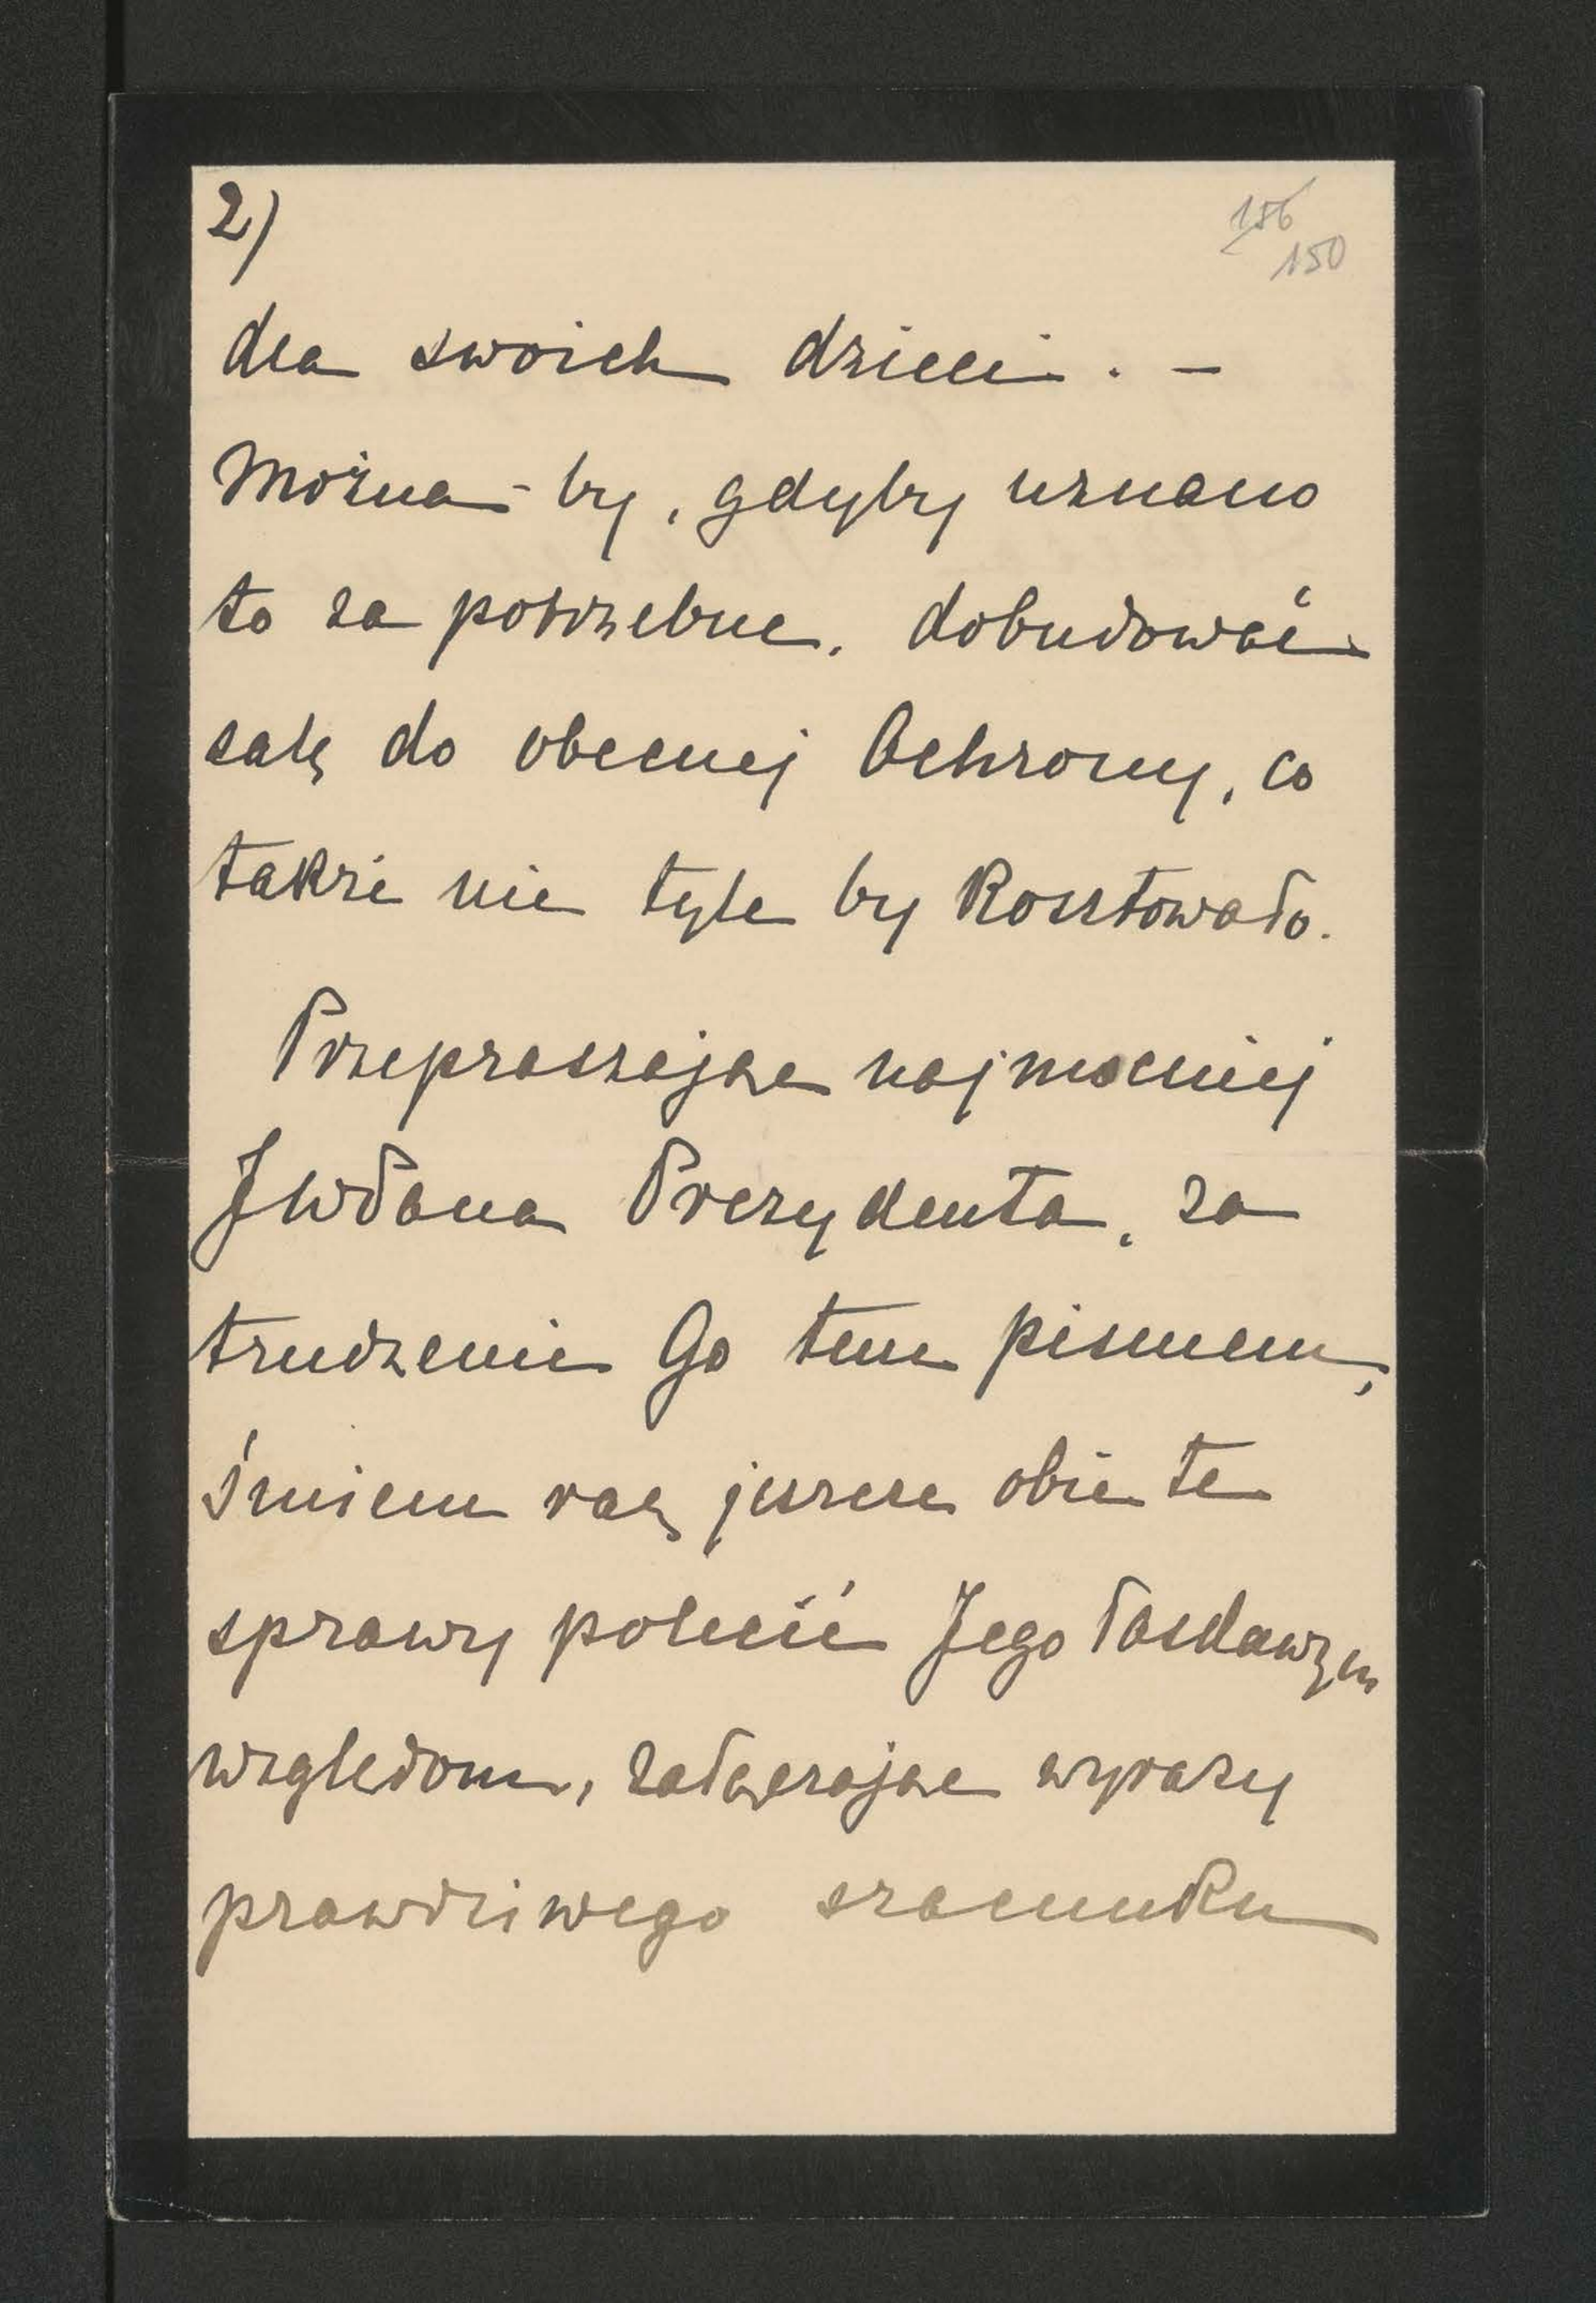 2)
156
150
dla swoich dzieci. –
Można-by, gdyby uznano
to za potrzebne, dobudować
salę do obecnej Ochrony, co
także nie tyle by kosztowało.
Przepraszając najmocniej
JWPana Prezydenta, za
trudzenie Go tem pismem,
śmiem raz jeszcze obie te
sprawy polecić Jego łaskawym
względom, załączając wyrazy
prawdziwego szacunku